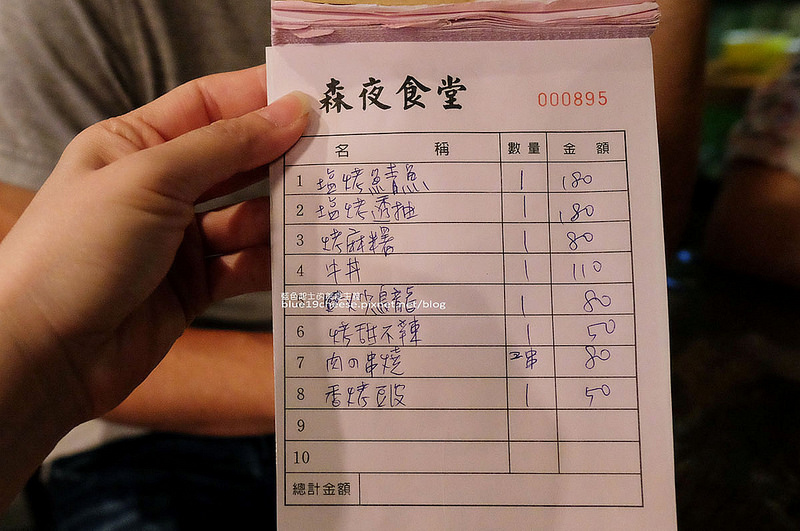 森夜食堂
000895
名 稱 數量 金額
1 塩烤鯖魚 1 180
2 塩烤透抽 1 180
3 烤麻糬 1 80
4 牛丼 1 110
藍色起士的美食主義
blue19cheese.pixnet.net/blog
炒烏龍 1 80
6 烤甜不辣 1 50
7 肉の串燒 2串 80
8 香烤豆皮 1 50
9
10
總計金額